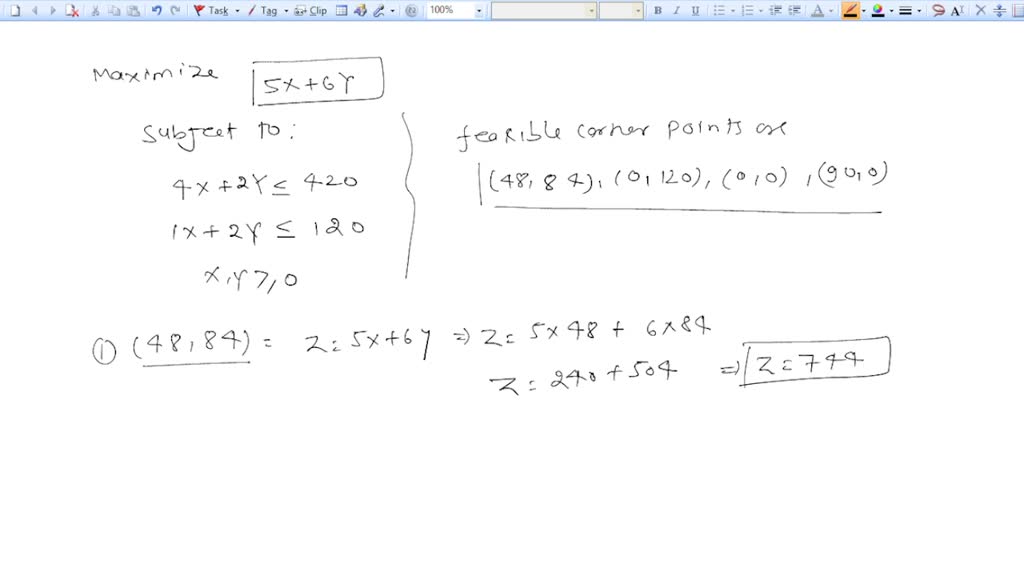 Task Tag Clip 100% B I U A
Maximize 5X+6Y
Subject to:
4X+2Y ≤ 420
1X+2Y ≤ 120
X,Y ≥ 0
feasible corner points are
(48,84), (0,120), (0,0), (90,0)
① (48,84) = Z=5X+6Y ⇒ Z= 5×48 + 6×84
Z= 240+504 ⇒ Z=744